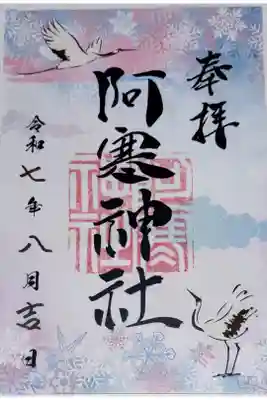 奉拝
阿寒神社
令和七年八月吉日